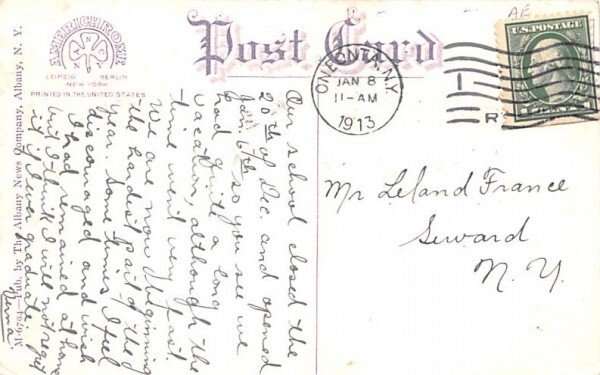 AMERICHROME
LEIPZIG BERLIN
NEW YORK
PRINTED IN THE UNITED STATES
Post Card
ONEONTA, N.Y.
JAN 8
11-AM
1913
U.S. POSTAGE
Mr Leland France
Seward
N. Y.
Our school closed the
20th of Dec. and opened
Jan 6th so you see we
had quite a long
vacation, although the
time went very fast.
We are now beginning
the hardest part of the
year. Some times I feel
discouraged and wish
I had remained at home
but I think I will not regret
it if I ever graduate.
Verna
M-6704—Pub. by The Albany News Company, Albany, N. Y.